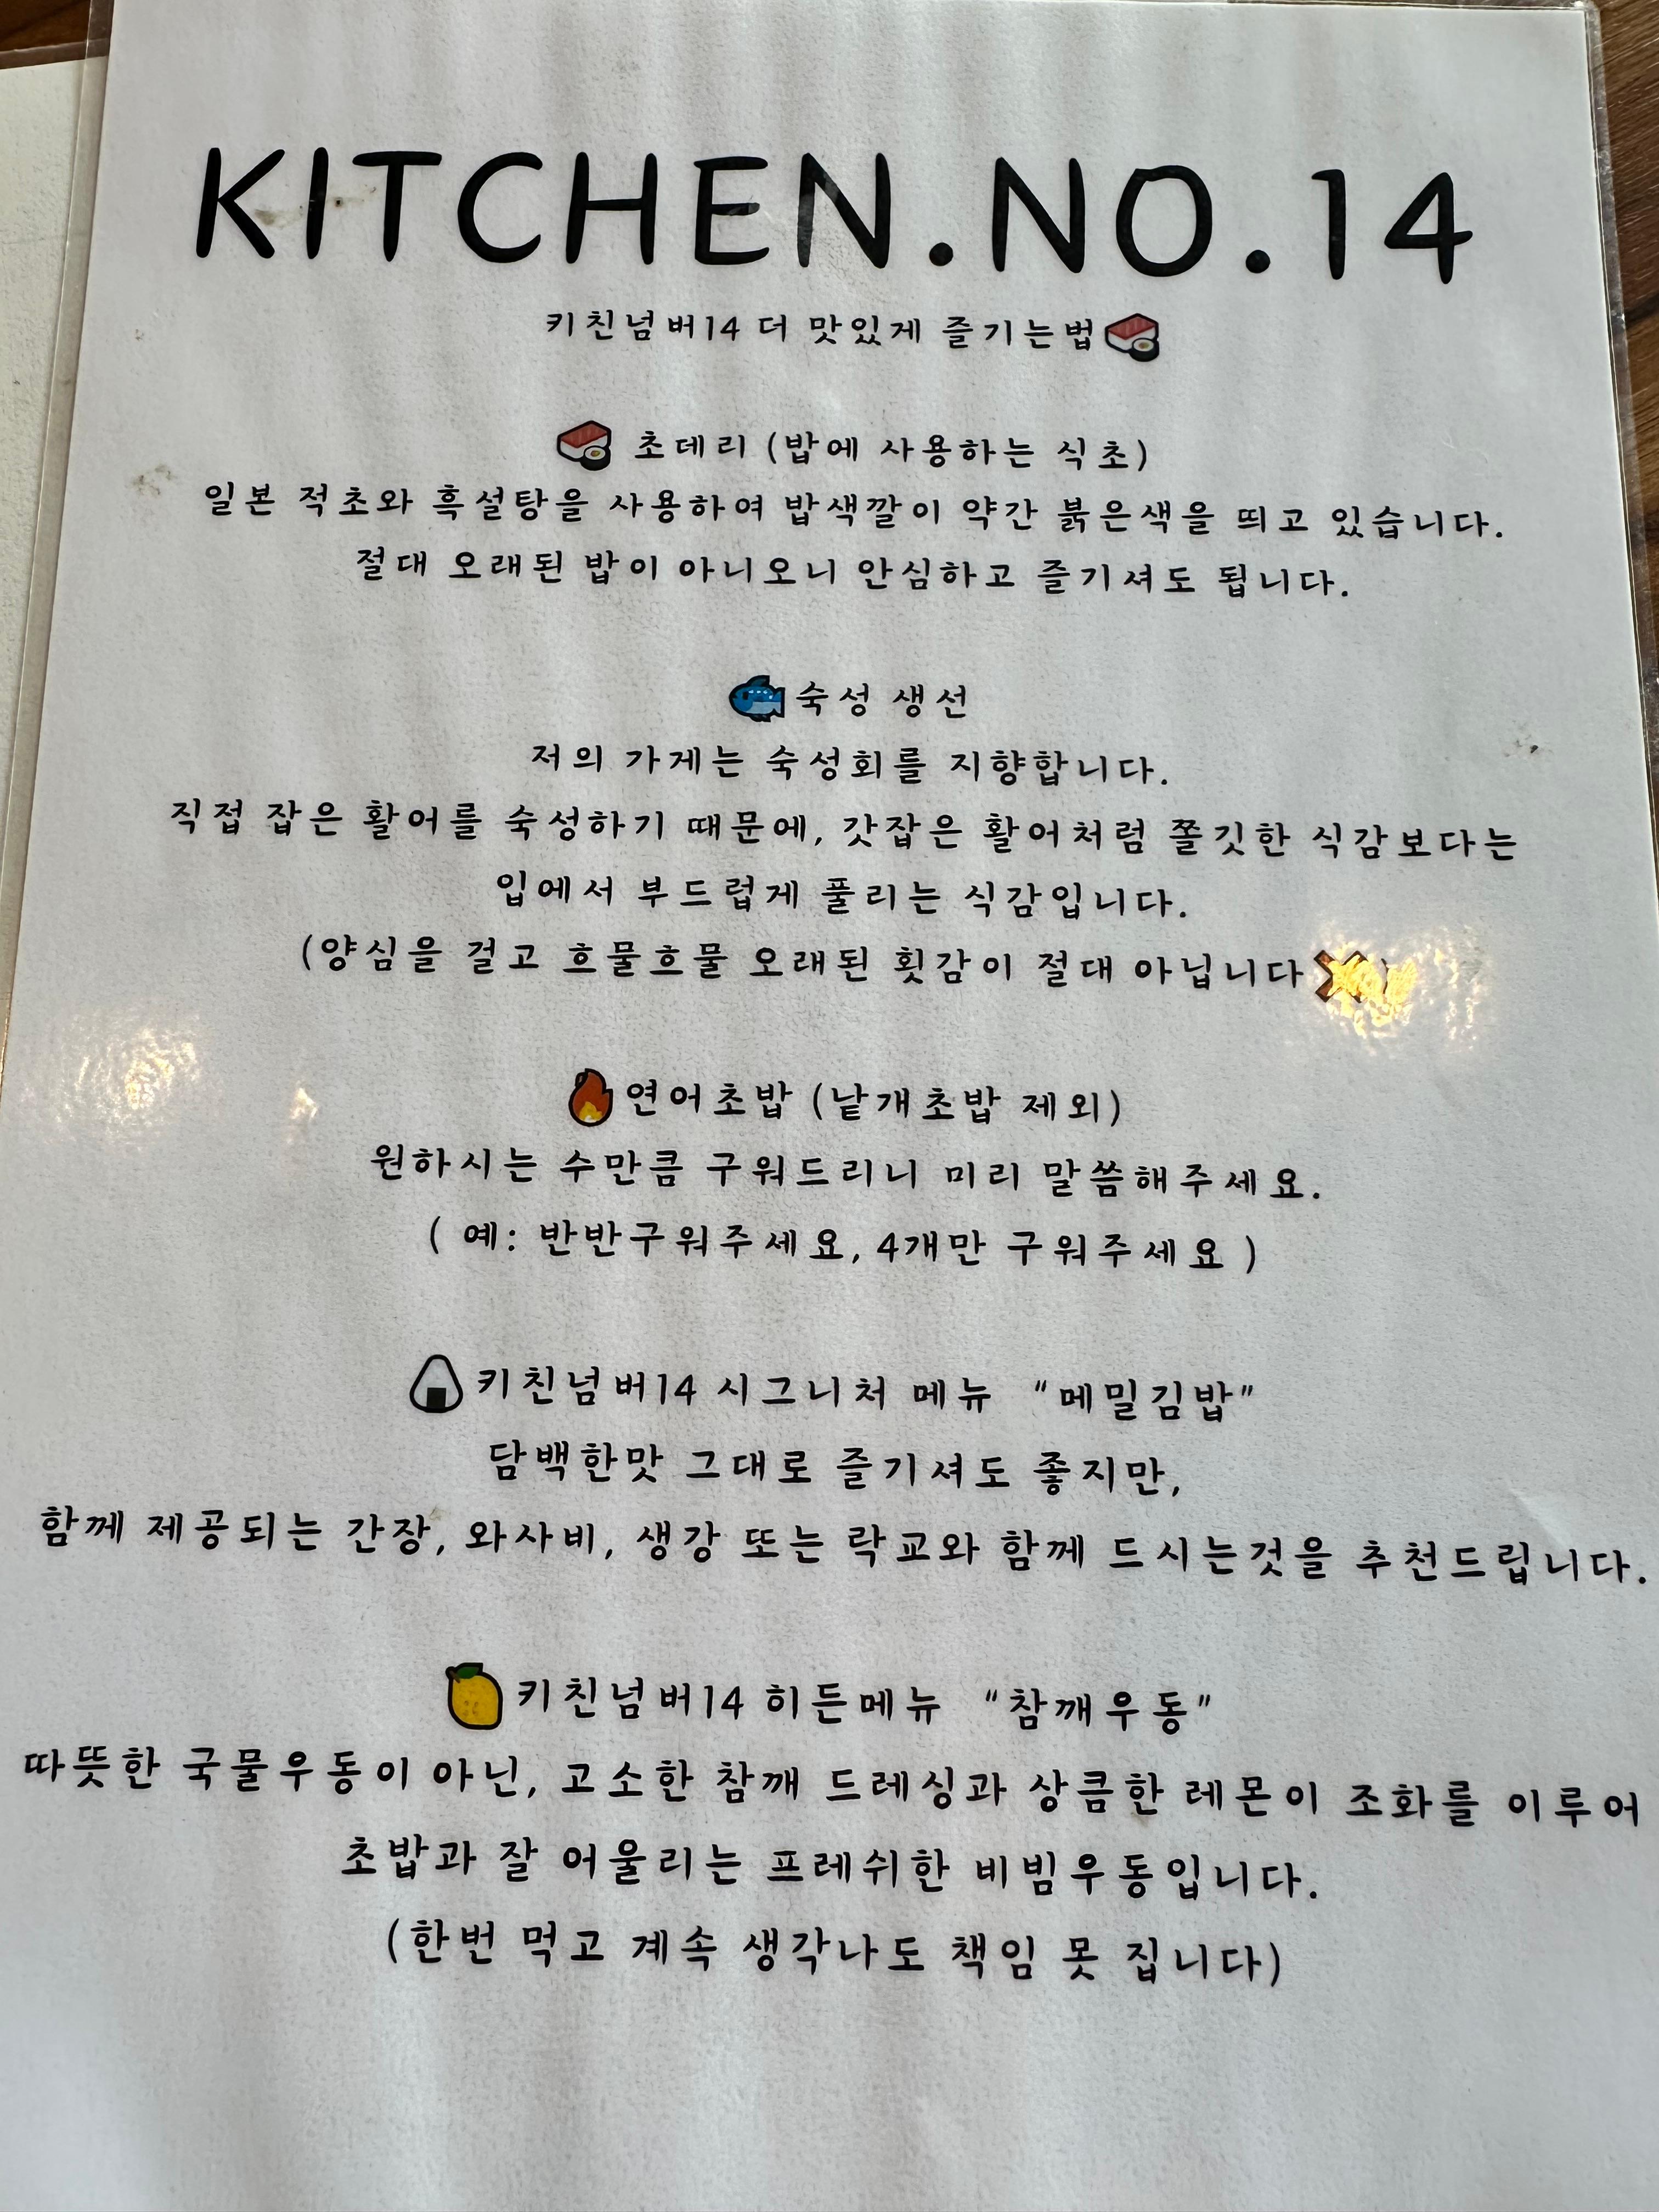 KITCHEN.NO.14
키친넘버14 더 맛있게 즐기는법
초데리 (밥에 사용하는 식초)
일본 적초와 흑설탕을 사용하여 밥색깔이 약간 붉은색을 띄고 있습니다.
절대 오래된 밥이 아니오니 안심하고 즐기셔도 됩니다.
숙성 생선
저의 가게는 숙성회를 지향합니다.
직접 잡은 활어를 숙성하기 때문에, 갓잡은 활어처럼 쫄깃한 식감보다는
입에서 부드럽게 풀리는 식감입니다.
(양심을 걸고 흐물흐물 오래된 횟감이 절대 아닙니다❌)
연어초밥 (낱개초밥 제외)
원하시는 수만큼 구워드리니 미리 말씀해주세요.
( 예: 반반구워주세요, 4개만 구워주세요 )
키친넘버14 시그니처 메뉴 "메밀김밥"
담백한맛 그대로 즐기셔도 좋지만,
함께 제공되는 간장, 와사비, 생강 또는 락교와 함께 드시는것을 추천드립니다.
키친넘버14 히든메뉴 "참깨우동"
따뜻한 국물우동이 아닌, 고소한 참깨 드레싱과 상큼한 레몬이 조화를 이루어
초밥과 잘 어울리는 프레쉬한 비빔우동입니다.
(한번 먹고 계속 생각나도 책임 못 집니다)